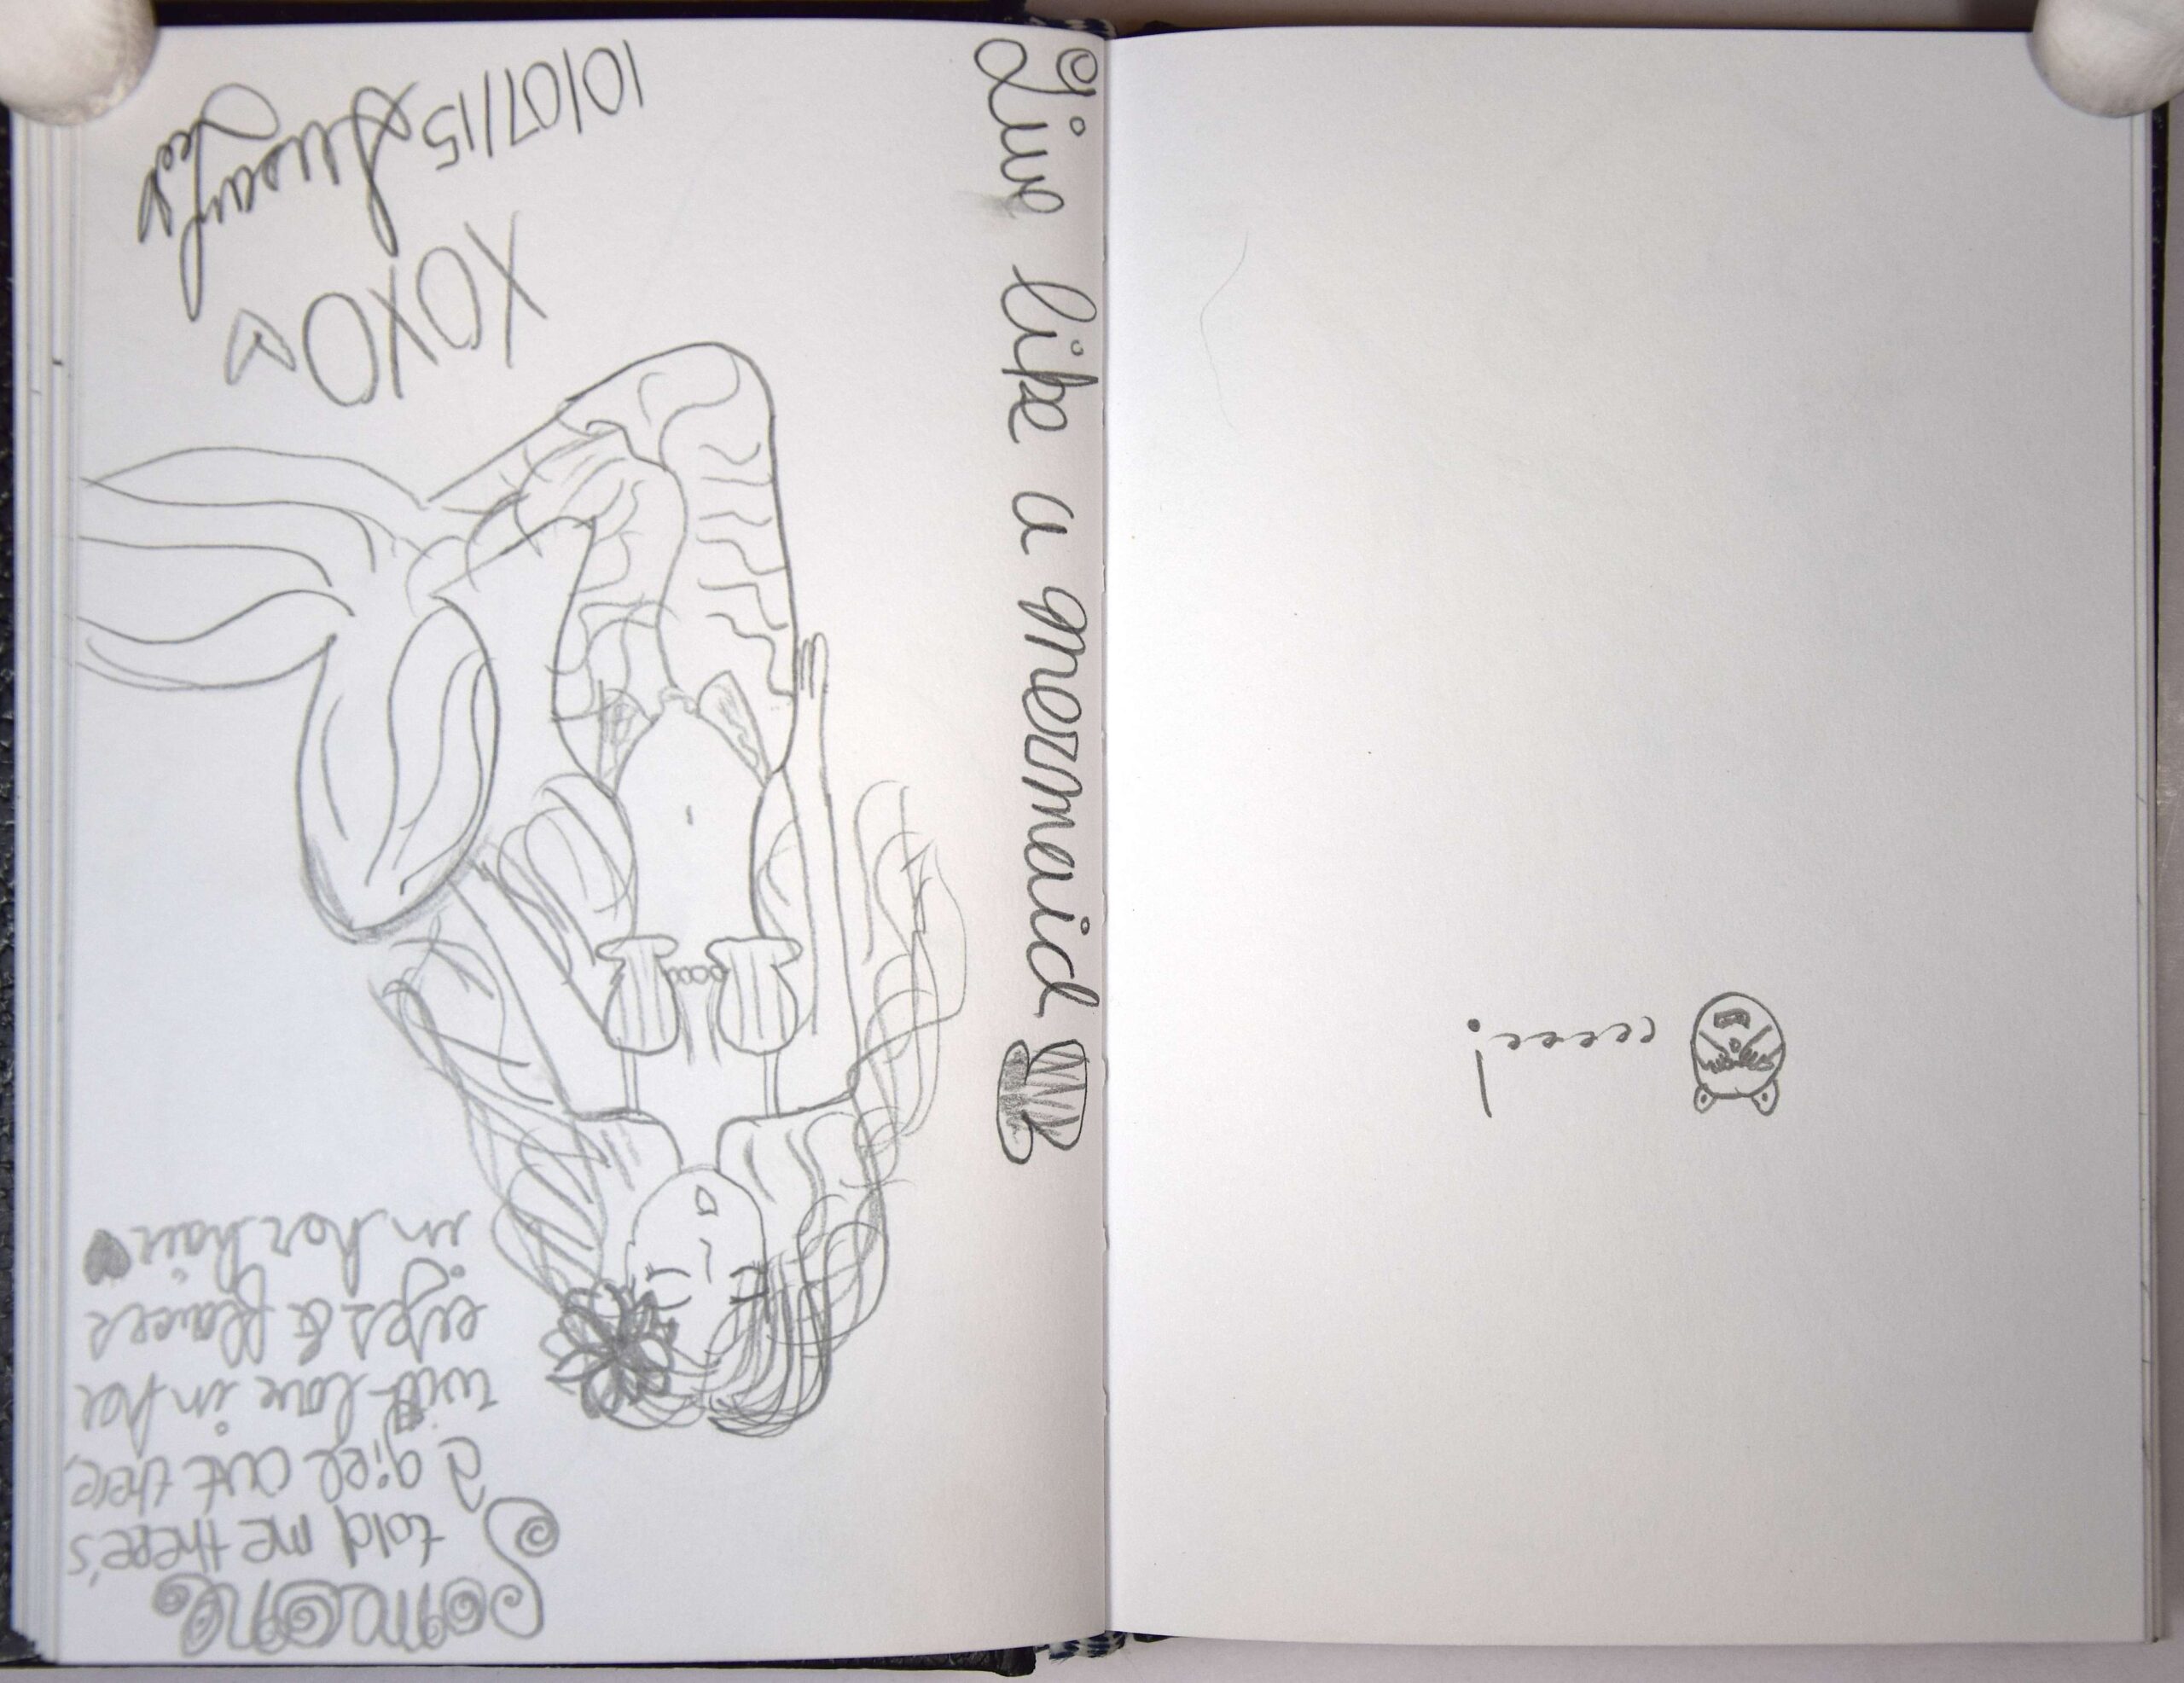 Someone
told me there's
a girl out there,
with love in her
eyes & flowers
in her hair ♥
XOXO
10/07/15
Live like a mermaid
eeeee!